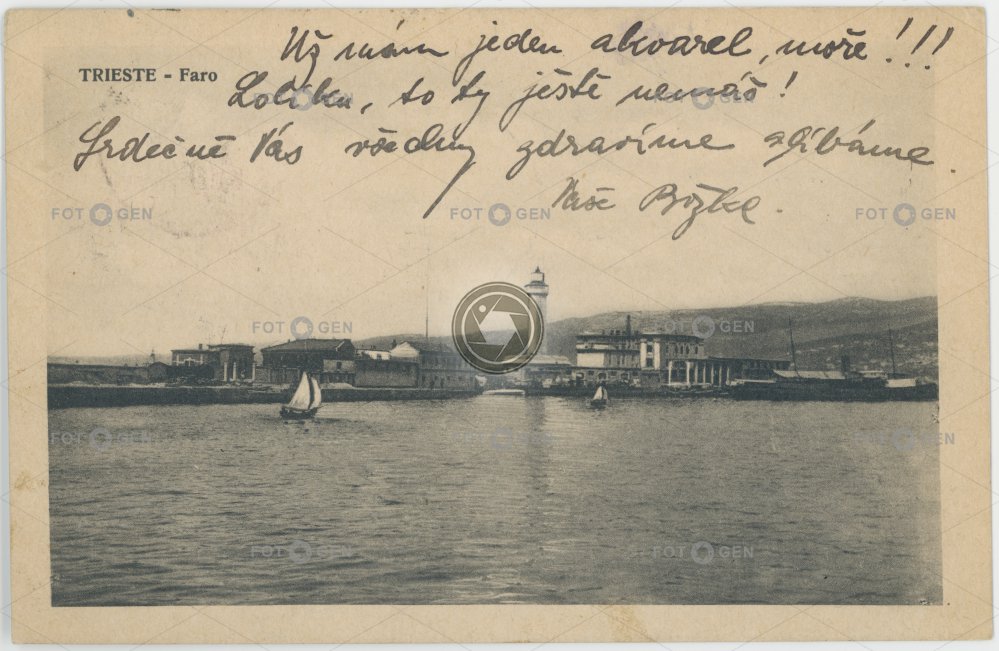 Už mám jeden akvarel, moře!!!
TRIESTE - Faro
Lolíku, to ty ještě nemáš!
Srdečně Vás všechny zdravíme a líbáme
Vaše Božka.
FOTOGEN FOTOGEN FOTOGEN
FOTOGEN FOTOGEN
FOTOGEN FOTOGEN FOTOGEN
FOTOGEN FOTOGEN